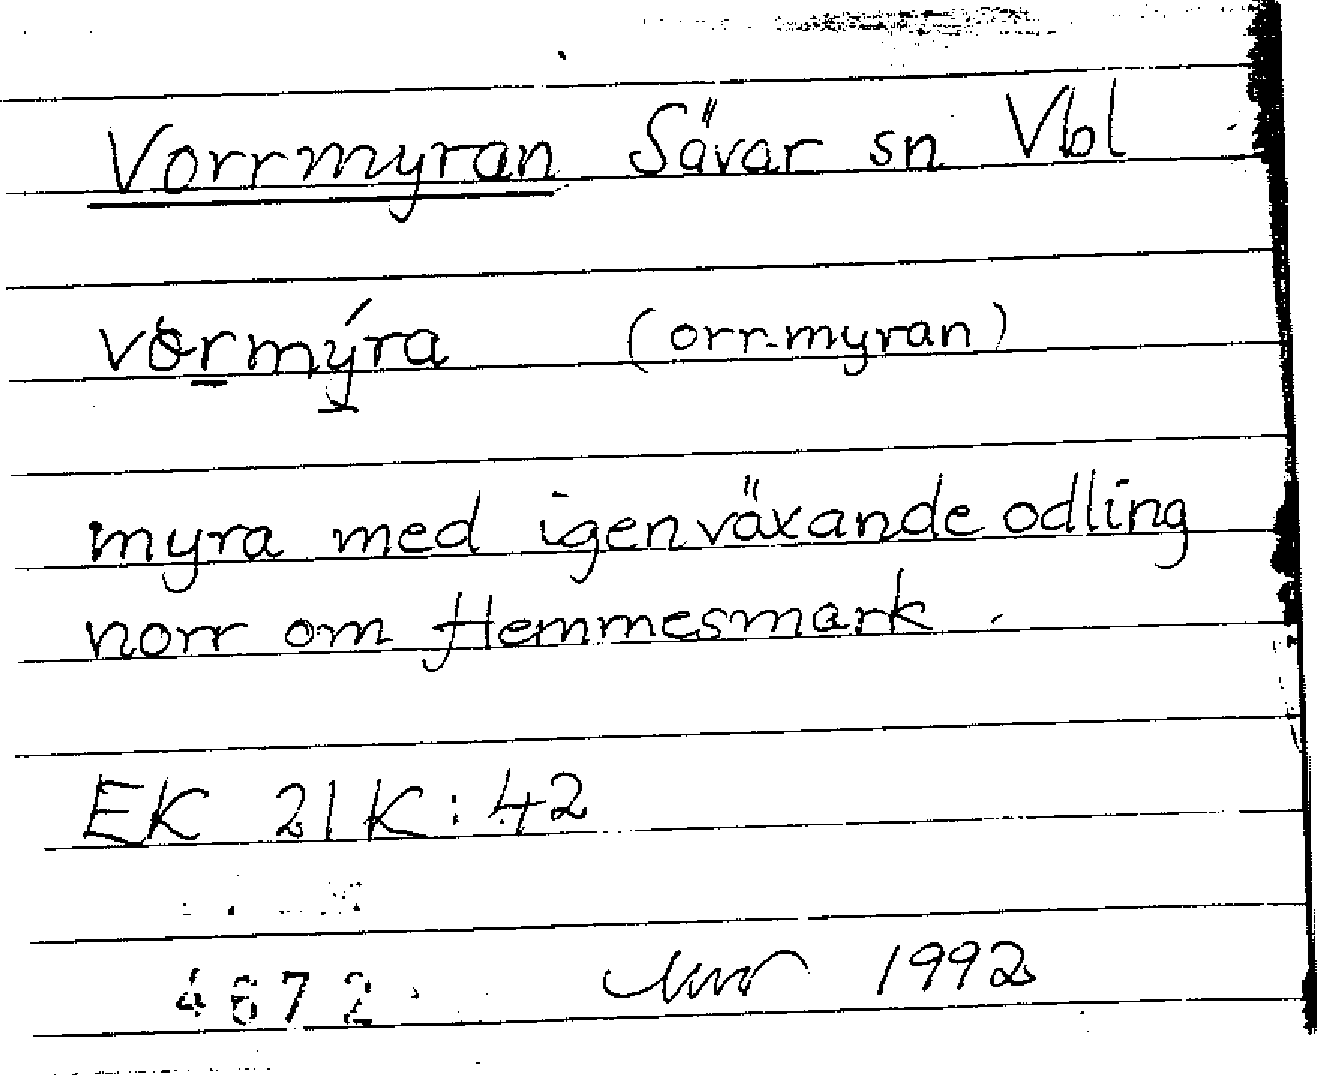 Vorrmyran Sävar sn Vbl
vörmýra (orr-myran)
myra med igenväxande odling
norr om Hemmesmark.
EK 21K:42
4672 1992